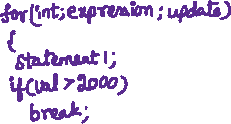 for(int;expression;update)
{
statement1;
if(val>2000)
break;